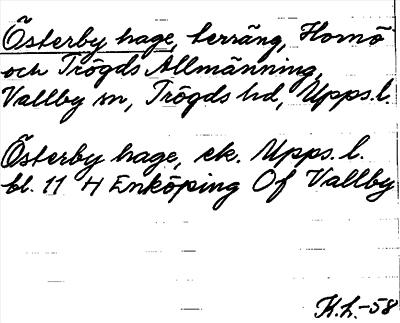 Österby hage, terräng, Homö
och Trögds Allmänning,
Vallby sn, Trögds hd, Upps.l.
Österby hage, ek. Upps.l.
bl. 11 H Enköping Of Vallby
K.L.-58